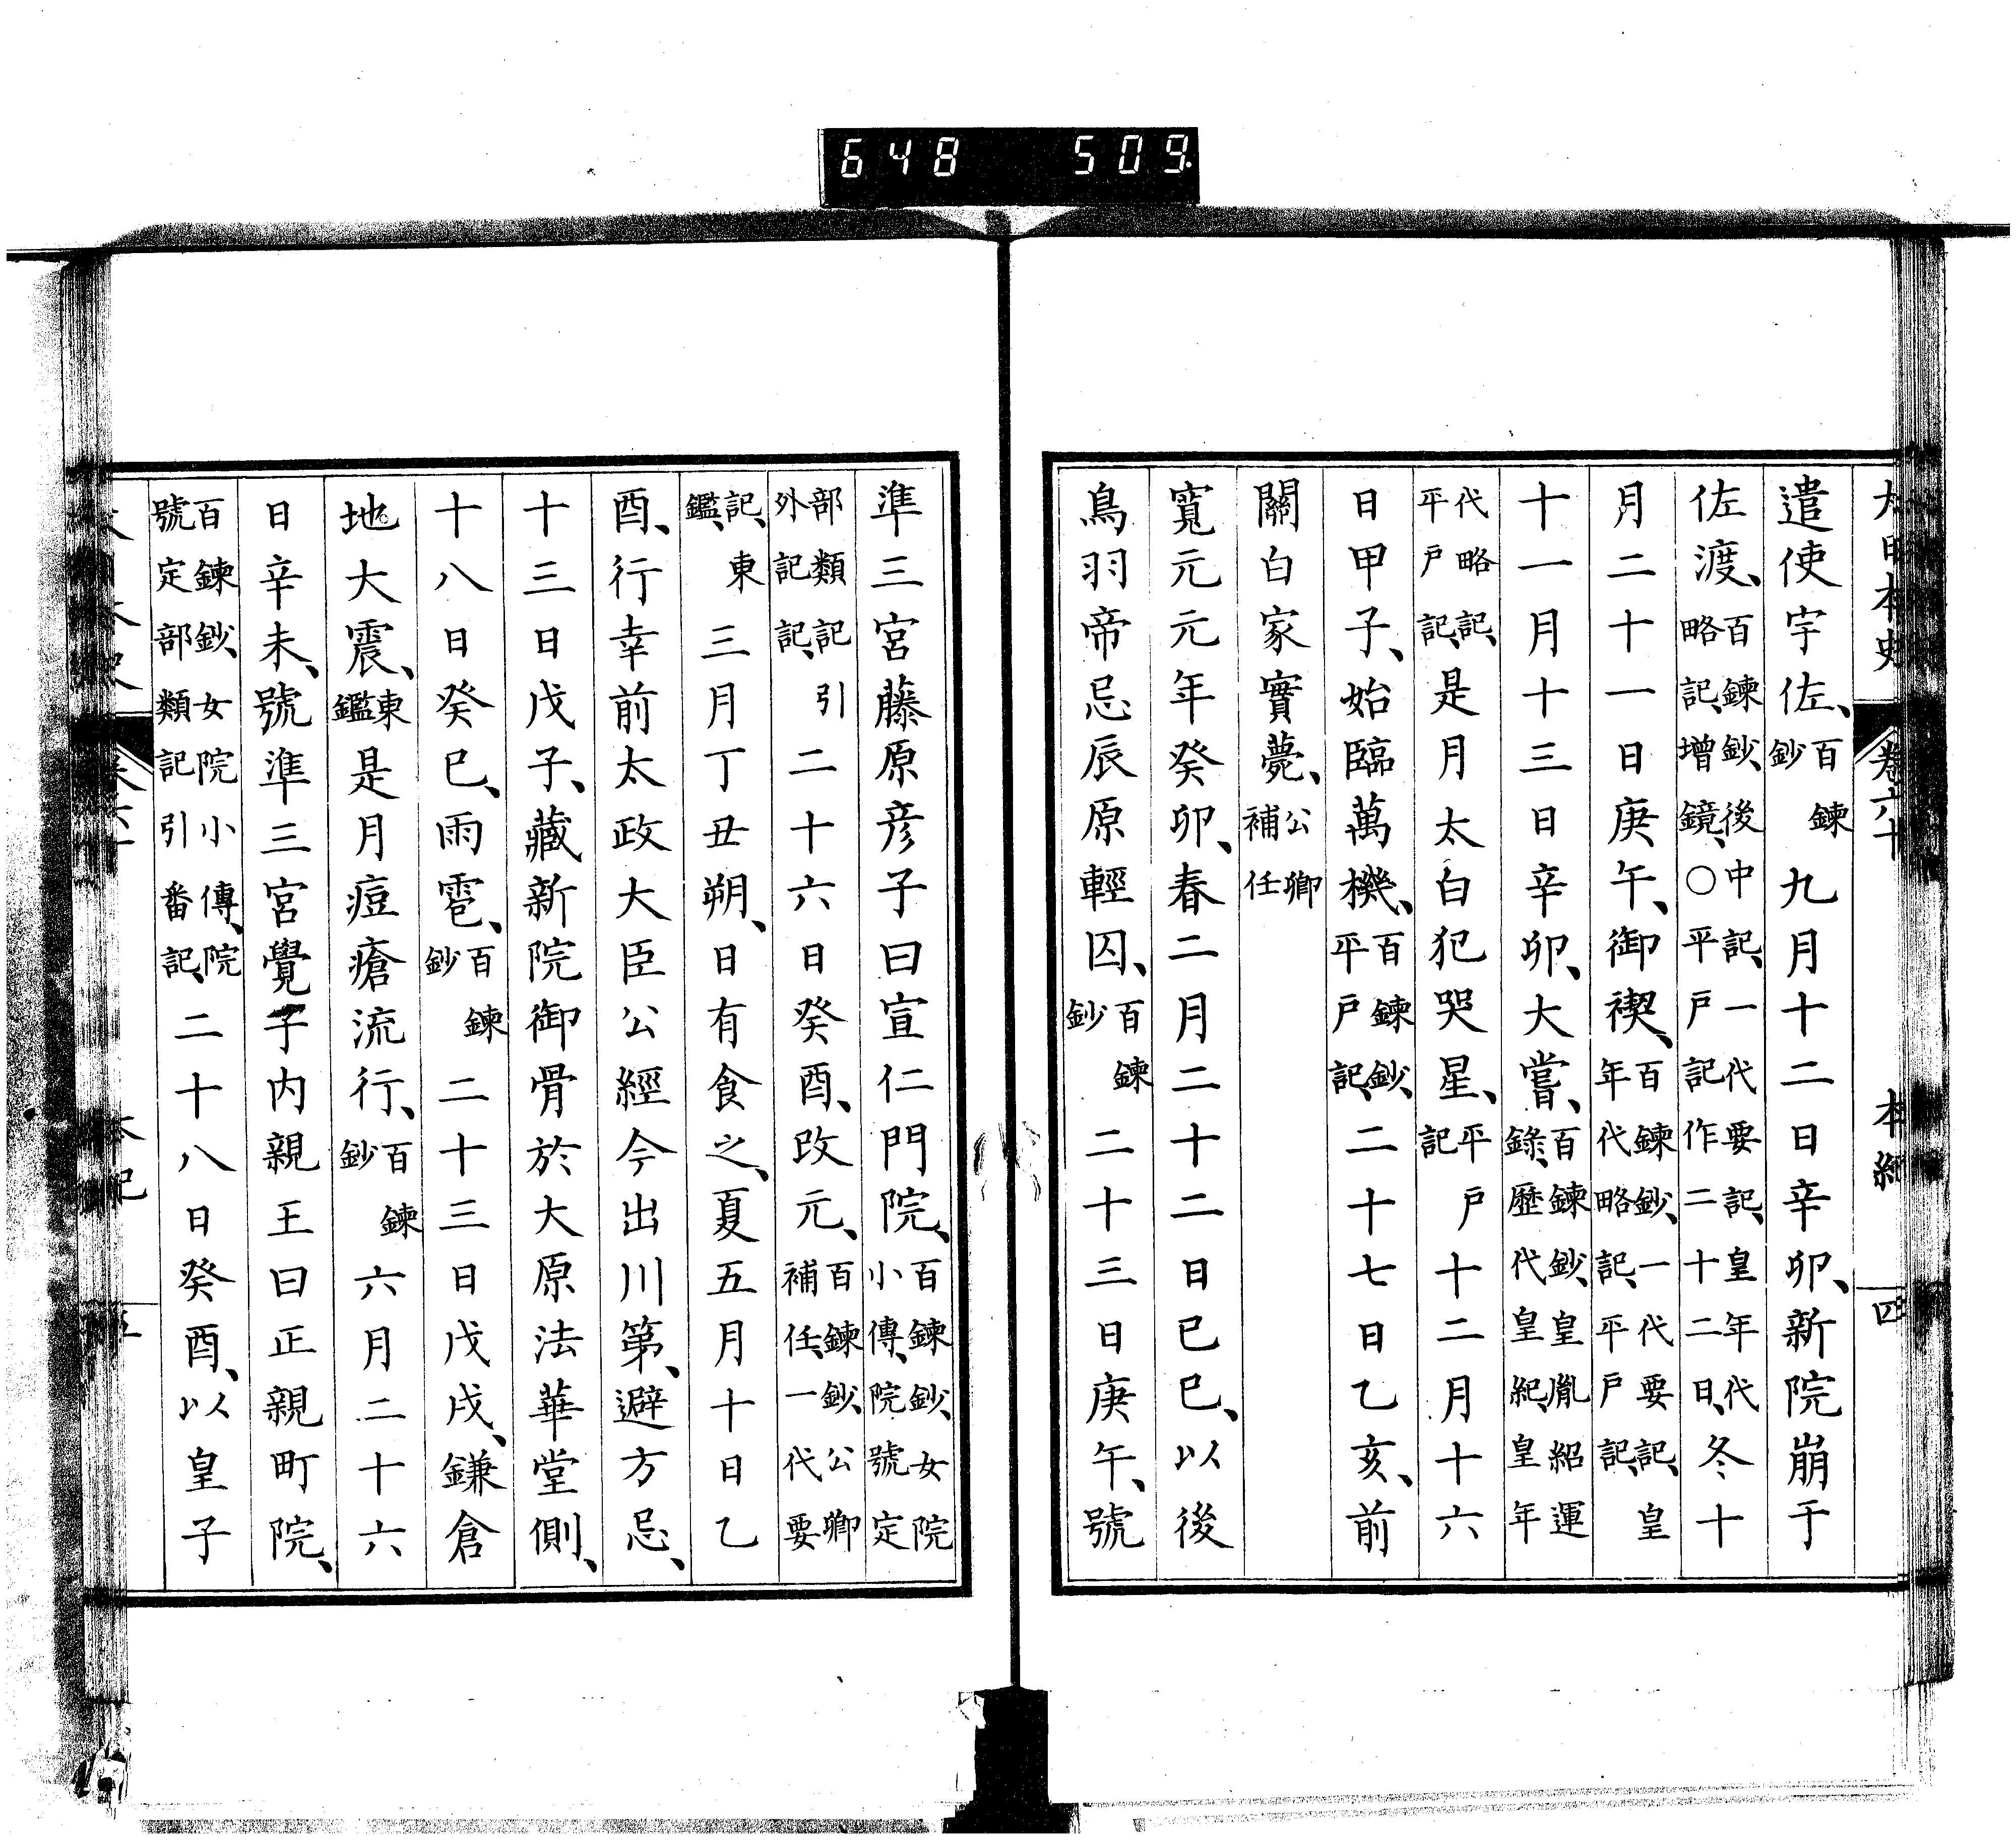 大日本史 卷六十 本紀 四
遣使宇佐、百鍊鈔九月十二日辛卯、新院崩于
佐渡、百鍊鈔、後中記、一代要記、皇年代略記、增鏡、○平戸記作二十二日、冬十
月二十一日庚午、御禊、百鍊鈔、一代要記、皇年代略記、平戸記、
十一月十三日辛卯、大嘗、百鍊鈔、皇胤紹運錄、歷代皇紀、皇年
代略記、平戸記、是月太白犯哭星、平戸記十二月十六
日甲子、始臨萬機、百鍊鈔、平戸記、二十七日乙亥、前
關白家實薨、公卿補任
寬元元年癸卯、春二月二十二日己巳、以後
鳥羽帝忌辰原輕囚、百鍊鈔二十三日庚午、號
準三宮藤原彦子曰宣仁門院、百鍊鈔、女院小傳、院號定
部類記引外記記、二十六日癸酉、改元、百鍊鈔、公卿補任、一代要
記、東鑑、三月丁丑朔、日有食之、夏五月十日乙
酉、行幸前太政大臣公經今出川第、避方忌、
十三日戊子、藏新院御骨於大原法華堂側、
十八日癸巳、雨雹、百鍊鈔二十三日戊戌、鎌倉
地大震、東鑑是月痘瘡流行、百鍊鈔六月二十六
日辛未、號準三宮覺子内親王曰正親町院、
百鍊鈔、女院小傳、院號定部類記引番記、二十八日癸酉、以皇子
648 509